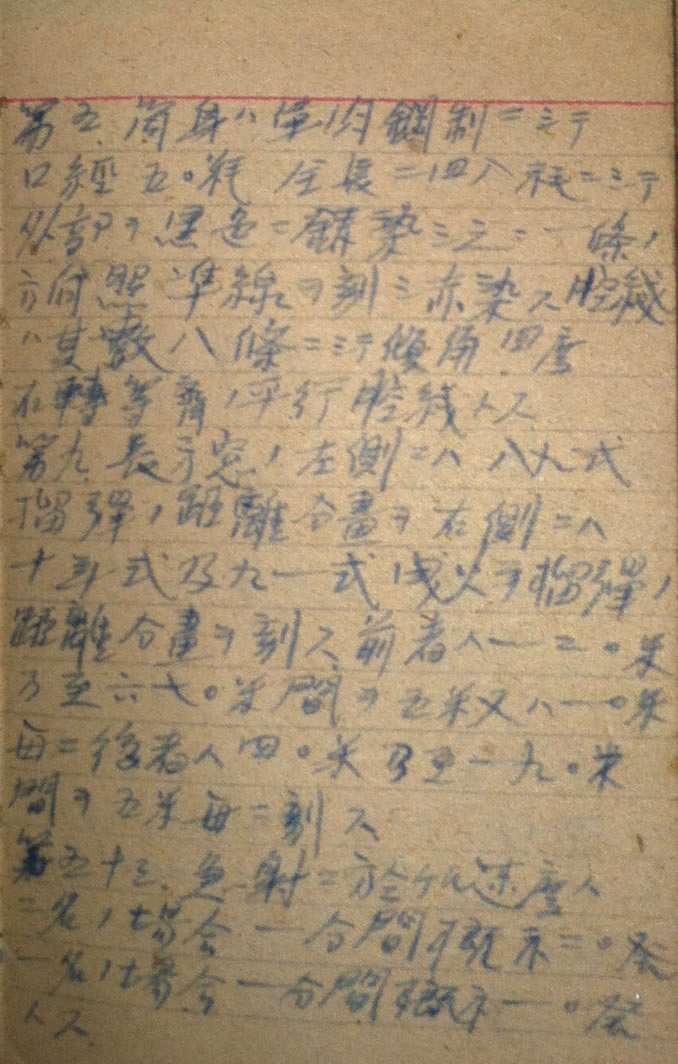 第五、筒身ハ単肉鋼制ニシテ
口經五〇粍全長二四八粍ニシテ
外部ヲ黒色ニ錆染シ之ニ一條ノ
方付照準線ヲ刻シ赤染ス腔綫
ハ其數八條ニシテ傾角四度
右轉等齊ノ平行腔綫トス
第九、表示窓ノ左側ニハ八九式
榴彈ノ距離分畫ヲ右側ニハ
十年式及九一式曳火手榴彈ノ
距離分畫ヲ刻ス前者ハ一二〇米
乃至六七〇米間ヲ五米又ハ一〇米
每ニ後者ハ四〇米乃至一九〇米
間ヲ五米每ニ刻ス
第五十三、急射ニ於ケル速度ハ
二名ノ場合一分間概ネ二〇発
一名ノ場合一分間概ネ一〇発
トス